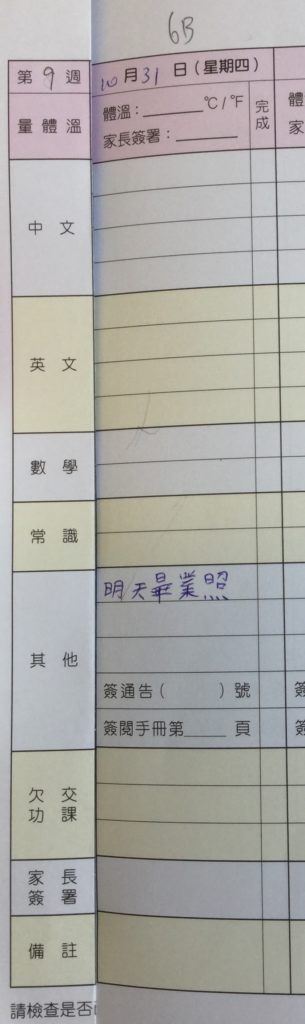 6B
第 9 週 10 月 31 日 (星期四)
量體溫 體溫：______ ℃/℉ 完成 體
家長簽署：______ 家
中 文
英 文
數 學
常 識
其 他 明天畢業照
簽通告( )號 簽
簽閱手冊第____ 頁 簽
欠 交
功 課
家 長
簽 署
備 註
請檢查是否